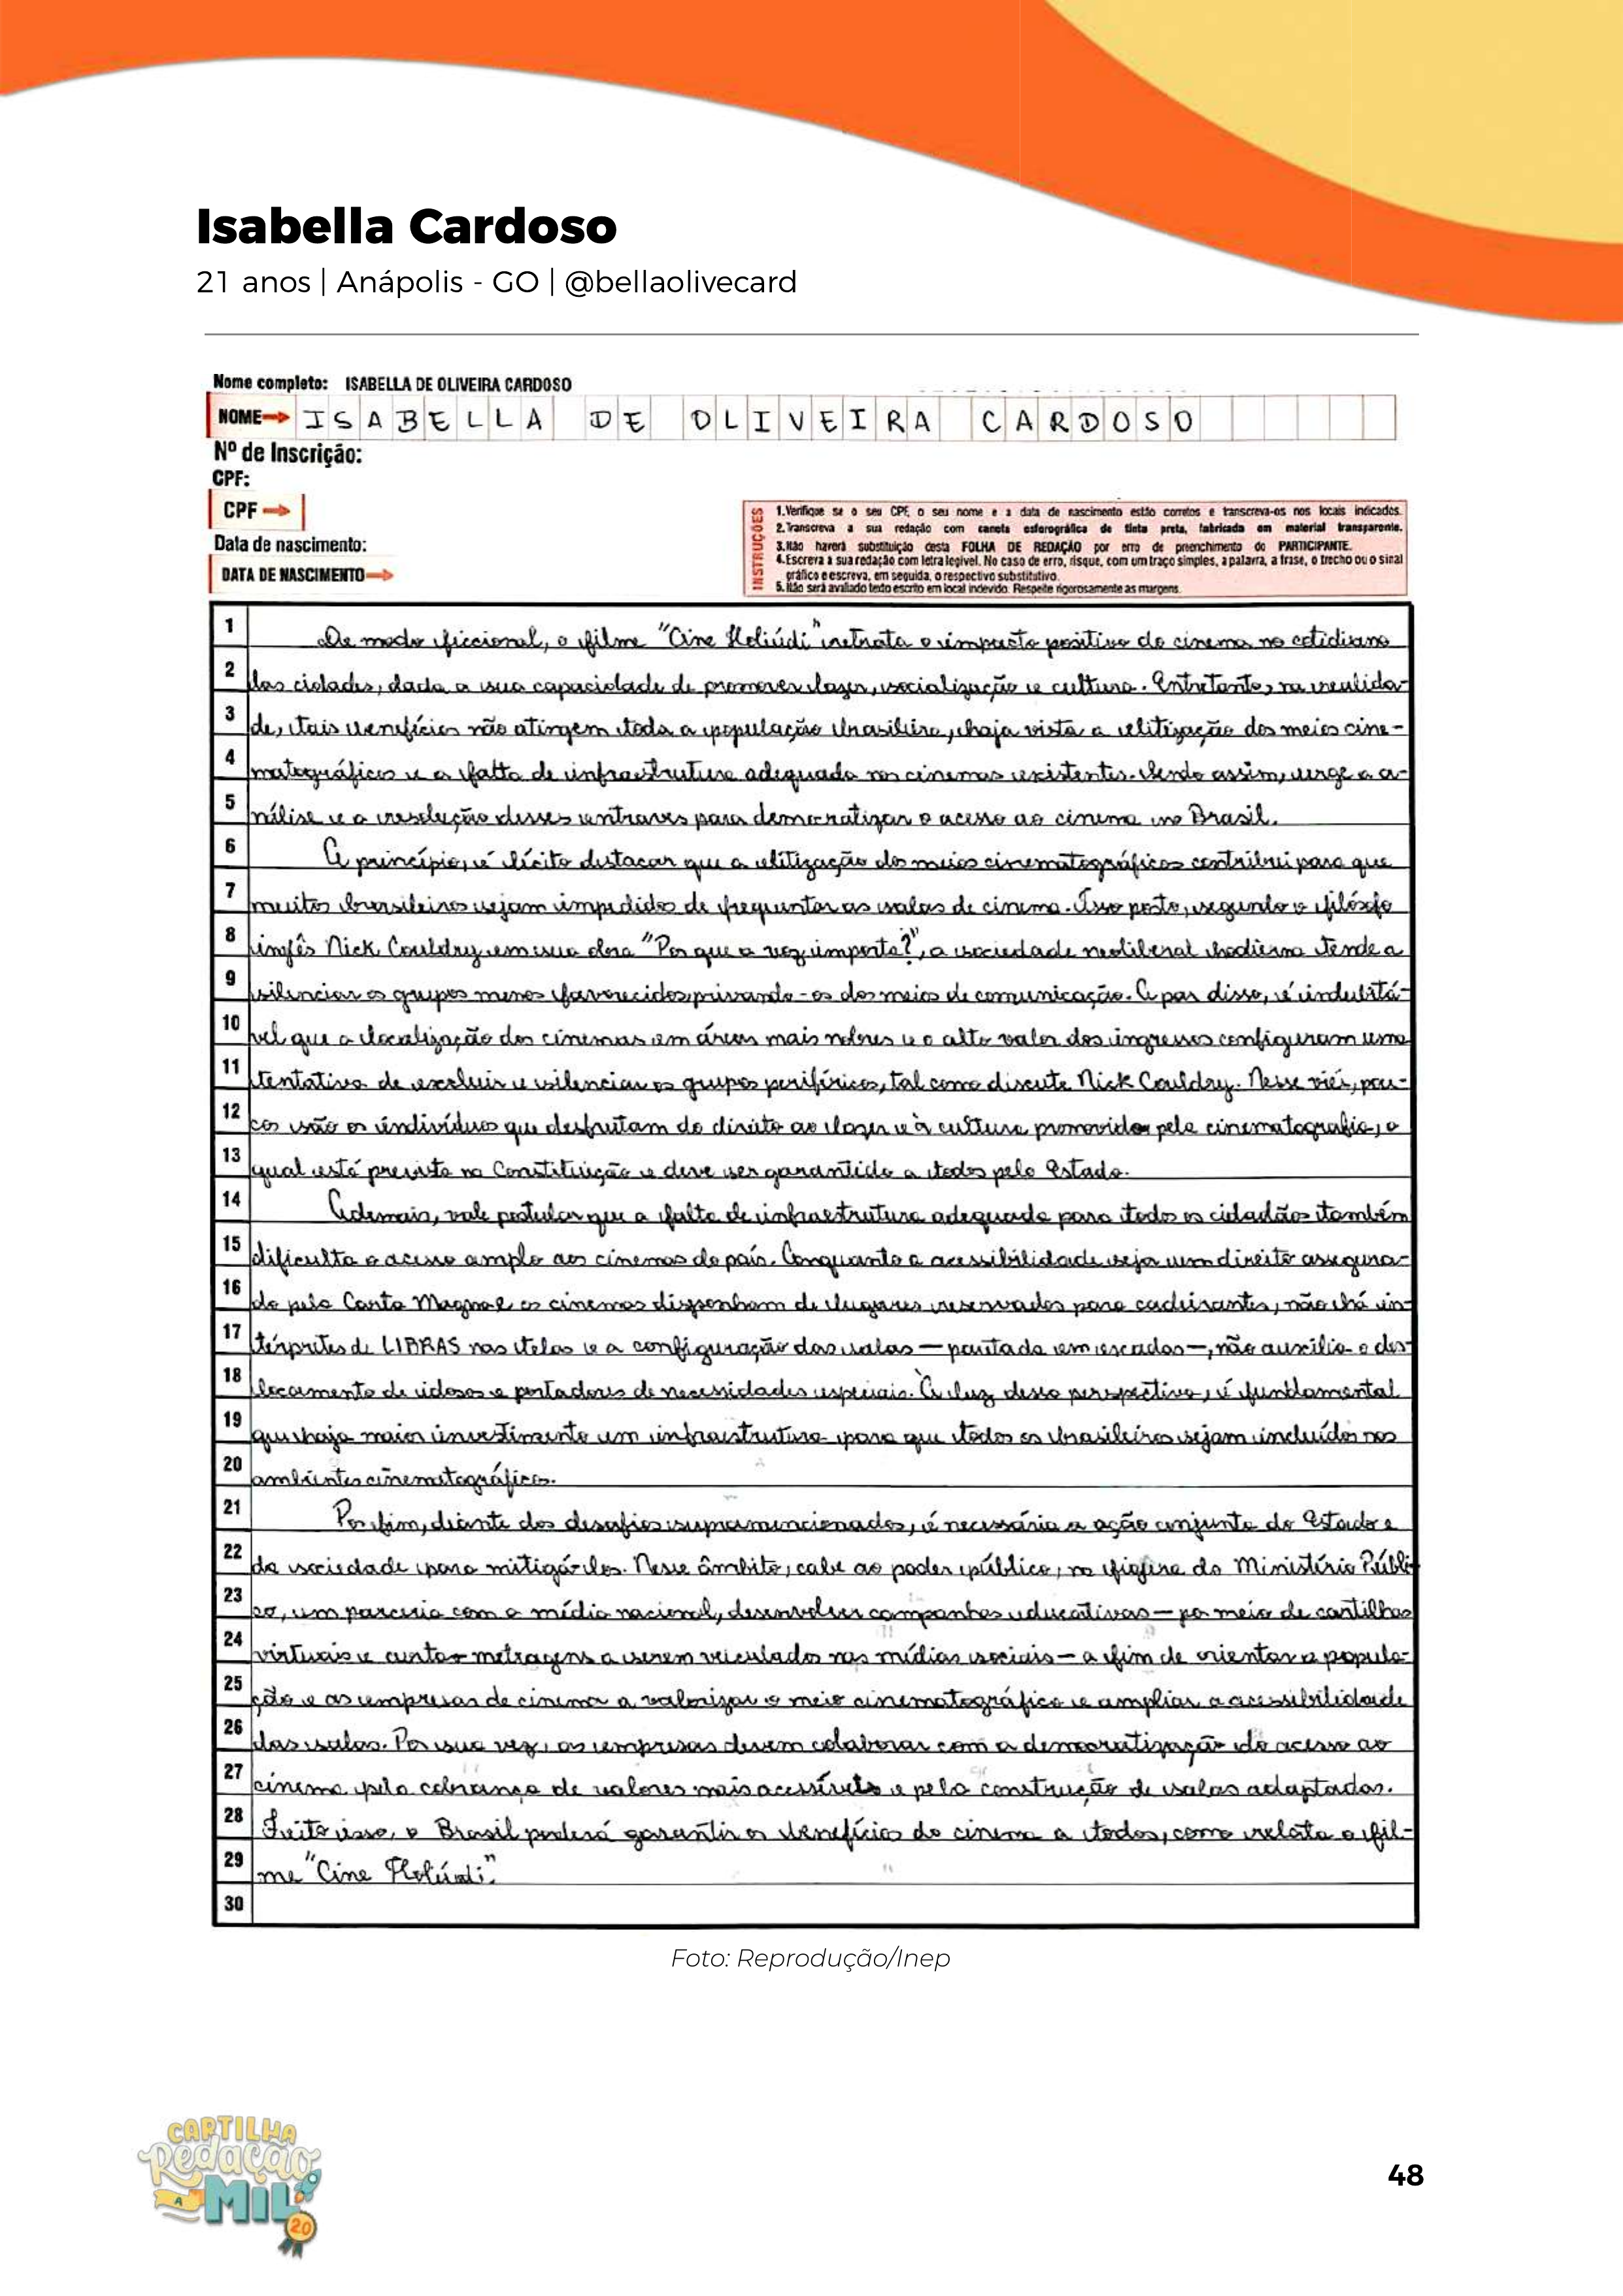 Isabella Cardoso
21 anos | Anápolis - GO | @bellaolivecard
Nome completo: ISABELLA DE OLIVEIRA CARDOSO
NOME ISABELLA DE OLIVEIRA CARDOSO
Nº de Inscrição:
CPF:
CPF
Data de nascimento:
DATA DE NASCIMENTO
INSTRUÇÕES
1.Verifique se o seu CPF, o seu nome e a data de nascimento estão corretos e transcreva-os nos locais indicados.
2.Transcreva a sua redação com caneta esferográfica de tinta preta, fabricada em material transparente.
3.Não haverá substituição desta FOLHA DE REDAÇÃO por erro de preenchimento do PARTICIPANTE.
4.Escreva a sua redação com letra legível. No caso de erro, risque, com um traço simples, a palavra, a frase, o trecho ou o sinal
gráfico e escreva, em seguida, o respectivo substitutivo.
5.Não será avaliado texto escrito em local indevido. Respeite rigorosamente as margens.
1 De modo ficcional, o filme "Cine Holiúdi" retrata o impacto positivo do cinema no cotidiano
2 das cidades, dada a sua capacidade de promover lazer, socialização e cultura. Entretanto, na realida-
3 de, tais benefícios não atingem toda a população brasileira, haja vista a elitização dos meios cine-
4 matográficos e a falta de infraestrutura adequada nos cinemas existentes. Sendo assim, urge a a-
5 nálise e a resolução desses entraves para democratizar o acesso ao cinema no Brasil.
6 A princípio, é lícito destacar que a elitização dos meios cinematográficos contribui para que
7 muitos brasileiros sejam impedidos de frequentar as salas de cinema. Isso posto, segundo o filósofo
8 inglês Nick Couldry em sua obra "Por que a voz importa?", a sociedade neoliberal hodierna tende a
9 silenciar os grupos menos favorecidos, privando-os dos meios de comunicação. A par disso, é indubitá-
10 vel que a localização dos cinemas em áreas mais nobres e o alto valor dos ingressos configuram uma
11 tentativa de excluir e silenciar os grupos periféricos, tal como discute Nick Couldry. Nesse viés, pou-
12 cos são os indivíduos que desfrutam do direito ao lazer e à cultura promovidos pela cinematografia, o
13 qual está previsto na Constituição e deve ser garantido a todos pelo Estado.
14 Ademais, vale postular que a falta de infraestrutura adequada para todos os cidadãos também
15 dificulta o acesso amplo aos cinemas do país. Conquanto a acessibilidade seja um direito assegura-
16 do pela Carta Magna e os cinemas disponham de lugares reservados para cadeirantes, não há in-
17 térpretes de LIBRAS nas telas e a configuração das salas — pautada em escadas —, não auxilia o des-
18 locamento de idosos e portadores de necessidades especiais. À luz dessa perspectiva, é fundamental
19 que haja maior investimento em infraestrutura para que todos os brasileiros sejam incluídos nos
20 ambientes cinematográficos.
21 Por fim, diante dos desafios supramencionados, é necessária a ação conjunta do Estado e
22 da sociedade para mitigá-los. Nesse âmbito, cabe ao poder público, na figura do Ministério Públi
23 co, em parceria com a mídia nacional, desenvolver campanhas educativas — por meio de cartilhas
24 virtuais e curtas-metragens a serem veiculados nas mídias sociais — a fim de orientar a popula-
25 ção e as empresas de cinema a valorizar o meio cinematográfico e ampliar a acessibilidade
26 das salas. Por sua vez, as empresas devem colaborar com a democratização do acesso ao
27 cinema pela cobrança de valores mais acessíveis e pela construção de salas adaptadas.
28 Feito isso, o Brasil poderá garantir os benefícios do cinema a todos, como relata o fil-
29 me "Cine Holiúdi".
30
Foto: Reprodução/Inep
CARTILHA
Redação
A MIL
20
48